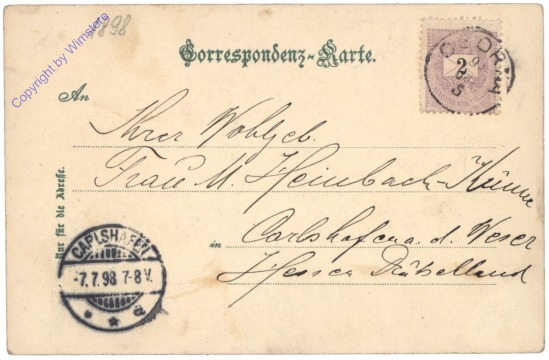 Copyright by Winstore
1898
Correspondenz-Karte.
An
2
Ihrer Wohlgeb.
Frau M. Heinbach-Künne
Nur für die Adresse.
in
Carlshafen a. d. Weser
Hessen
CARLSHAFEN
-7.7.98 7-8 V.
* * a